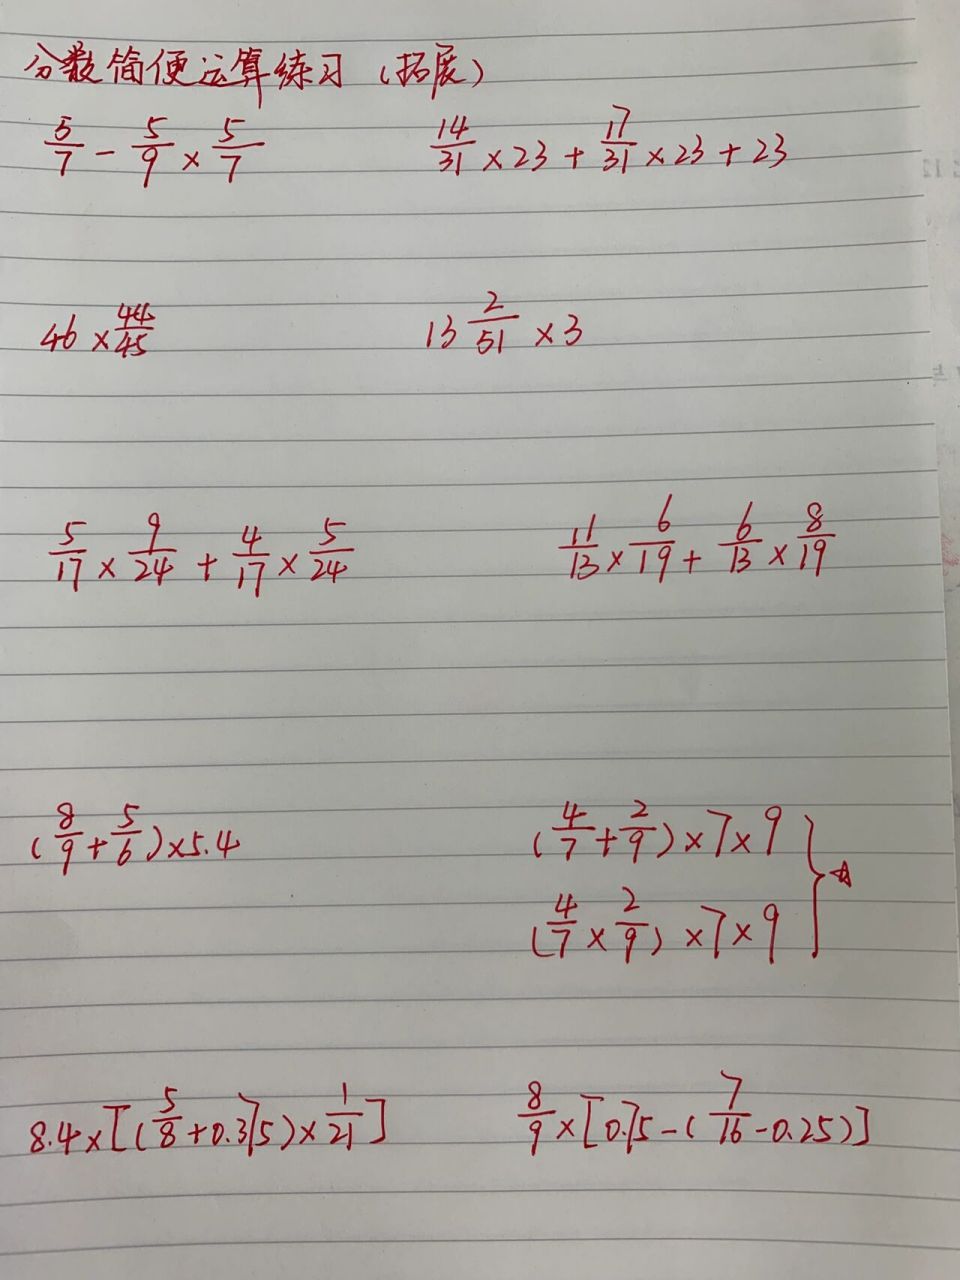 分数简便运算练习（拓展）
5/7 - 5/9 × 5/7    14/31 × 23 + 17/31 × 23 + 23
46 × 44/45    13 2/51 × 3
5/17 × 9/24 + 4/17 × 5/24    11/13 × 6/19 + 6/13 × 8/19
(8/9 + 5/6) × 5.4    (4/7 + 2/9) × 7 × 9
(4/7 × 2/9) × 7 × 9
8.4 × [(5/8 + 0.375) × 1/21]    8/9 × [0.75 - (7/16 - 0.25)]